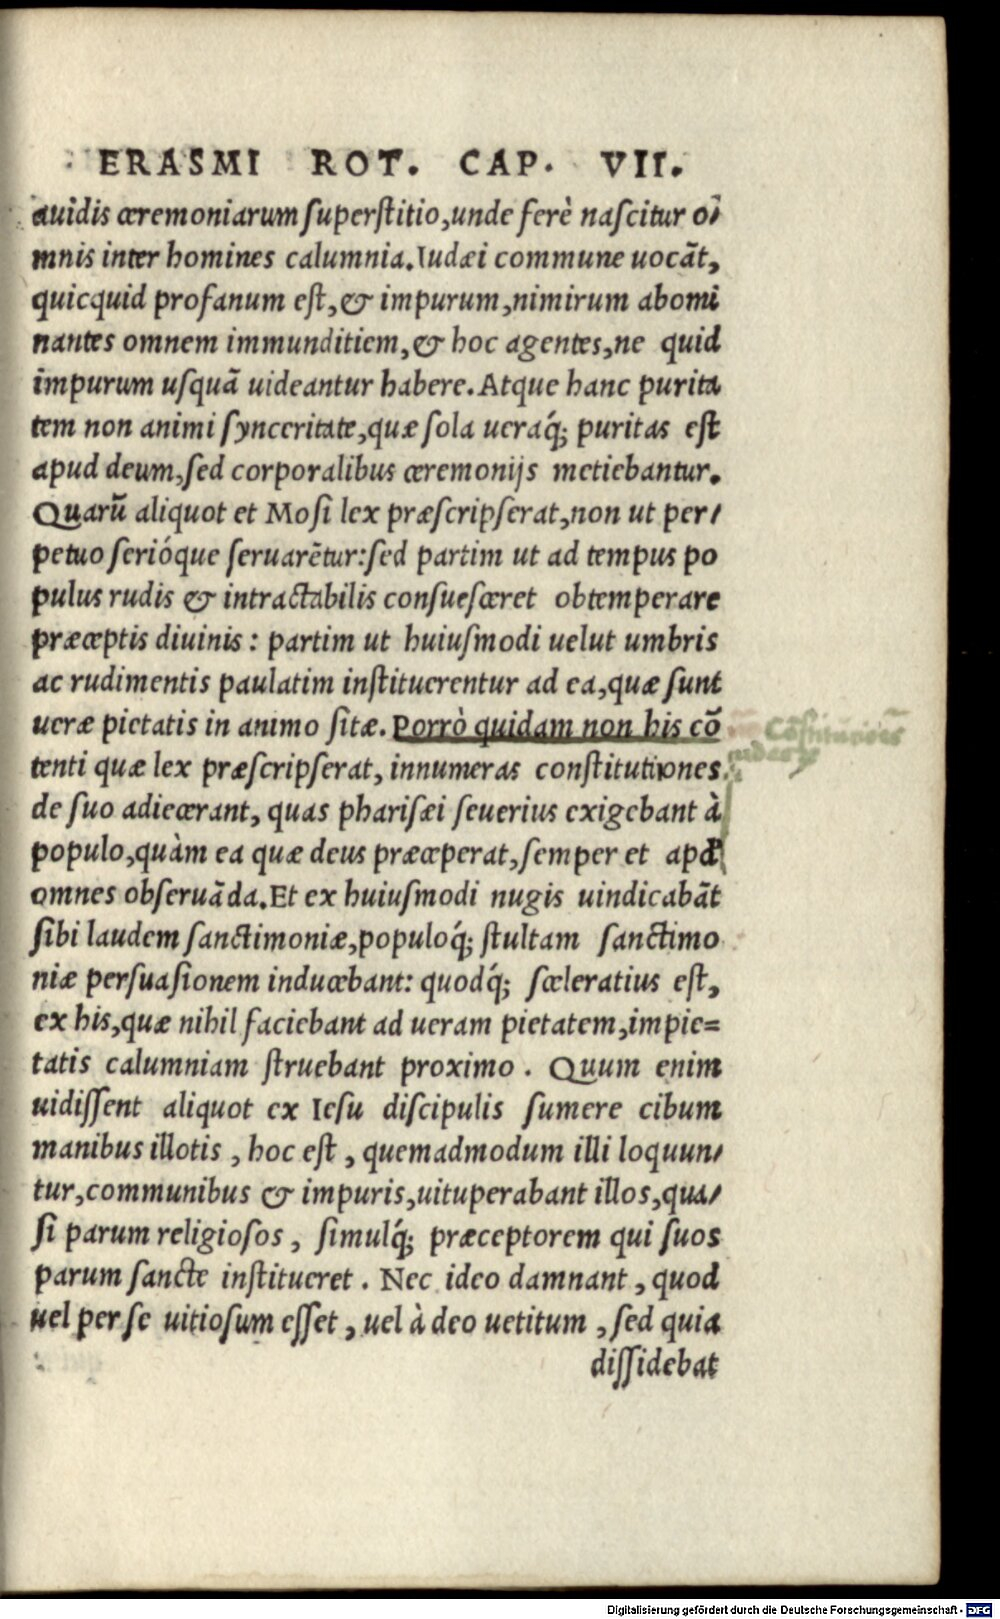 ERASMI ROT. CAP. VII.
auidis cæremoniarum superstitio, unde ferè nascitur o-
mnis inter homines calumnia. Iudæi commune uocãt,
quicquid profanum est, & impurum, nimirum abomi
nantes omnem immunditiem, & hoc agentes, ne quid
impurum usquã uideantur habere. Atque hanc purita
tem non animi synceritate, quæ sola ueraq́; puritas est
apud deum, sed corporalibus cæremonijs metiebantur.
Quarũ aliquot et Mosi lex præscripserat, non ut per-
petuo serióque seruarẽtur: sed partim ut ad tempus po
pulus rudis & intractabilis consuesceret obtemperare
præceptis diuinis: partim ut huiusmodi uelut umbris
ac rudimentis paulatim instituerentur ad ea, quæ sunt
ueræ pietatis in animo sitæ. Porrò quidam non his cõ
tenti quæ lex præscripserat, innumeras constitutiones
de suo adiecerant, quas pharisæi seuerius exigebant à
populo, quàm ea quæ deus præceperat, semper et apd
omnes obseruãda. Et ex huiusmodi nugis uindicabãt
sibi laudem sanctimoniæ, populoq́; stultam sanctimo
niæ persuasionem inducebant: quodq́; sceleratius est,
ex his, quæ nihil faciebant ad ueram pietatem, impie=
tatis calumniam struebant proximo. Quum enim
uidissent aliquot ex Iesu discipulis sumere cibum
manibus illotis, hoc est, quemadmodum illi loquun-
tur, communibus & impuris, uituperabant illos, qua-
si parum religiosos, simulq́; præceptorem qui suos
parum sancte institueret. Nec ideo damnant, quod
uel per se uitiosum esset, uel à deo uetitum, sed quia
dissidebat
Cõstitutiões
Digitalisierung gefördert durch die Deutsche Forschungsgemeinschaft - DFG